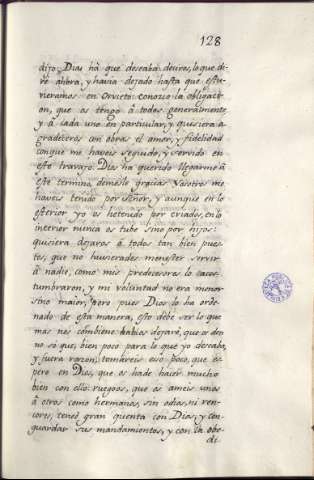 128
dijo: Dias hà que deseaba deciros, lo que di-
rè ahora, y havia dejado hasta que estu-
vieramos en Orvieto: conozco la obligaci-
on, que os tengo à todos generalmente,
y à cada uno en particular, y quisiera a-
gradeceros con obras el amor, y fidelidad
con que me haveis seguido, y servido en
este travajo: Dios ha querido llegarme à
este termino, demosle gracias. Vosotros me
haveis tenido por Señor, y aunque en lo
esterior yo os he tenido por criados, en lo
interior nunca os tube sino por hijos:
quisiera dejaros à todos tan bien pues-
tos, que no huvierades menester servir
à nadie, como mis predecesores lo acos-
tumbraron, y mi voluntad no era menor
sino maior, Pero pues Dios lo ha orde-
nado de esta manera, esto debe ser lo que
mas nos combiene: habios dejarè, que os den
no sè que, bien poco para lo que yo deseaba,
y fuera razon; tomareis eso poco, que es-
pero en Dios, que os hade hacer mucho
bien con ello: ruegoos, que os ameis unos
à otros como hermanos, sin odios, ni ren-
cores; tened gran quenta con Dios; y con
guardar sus mandamientos, y con la obe-
di-